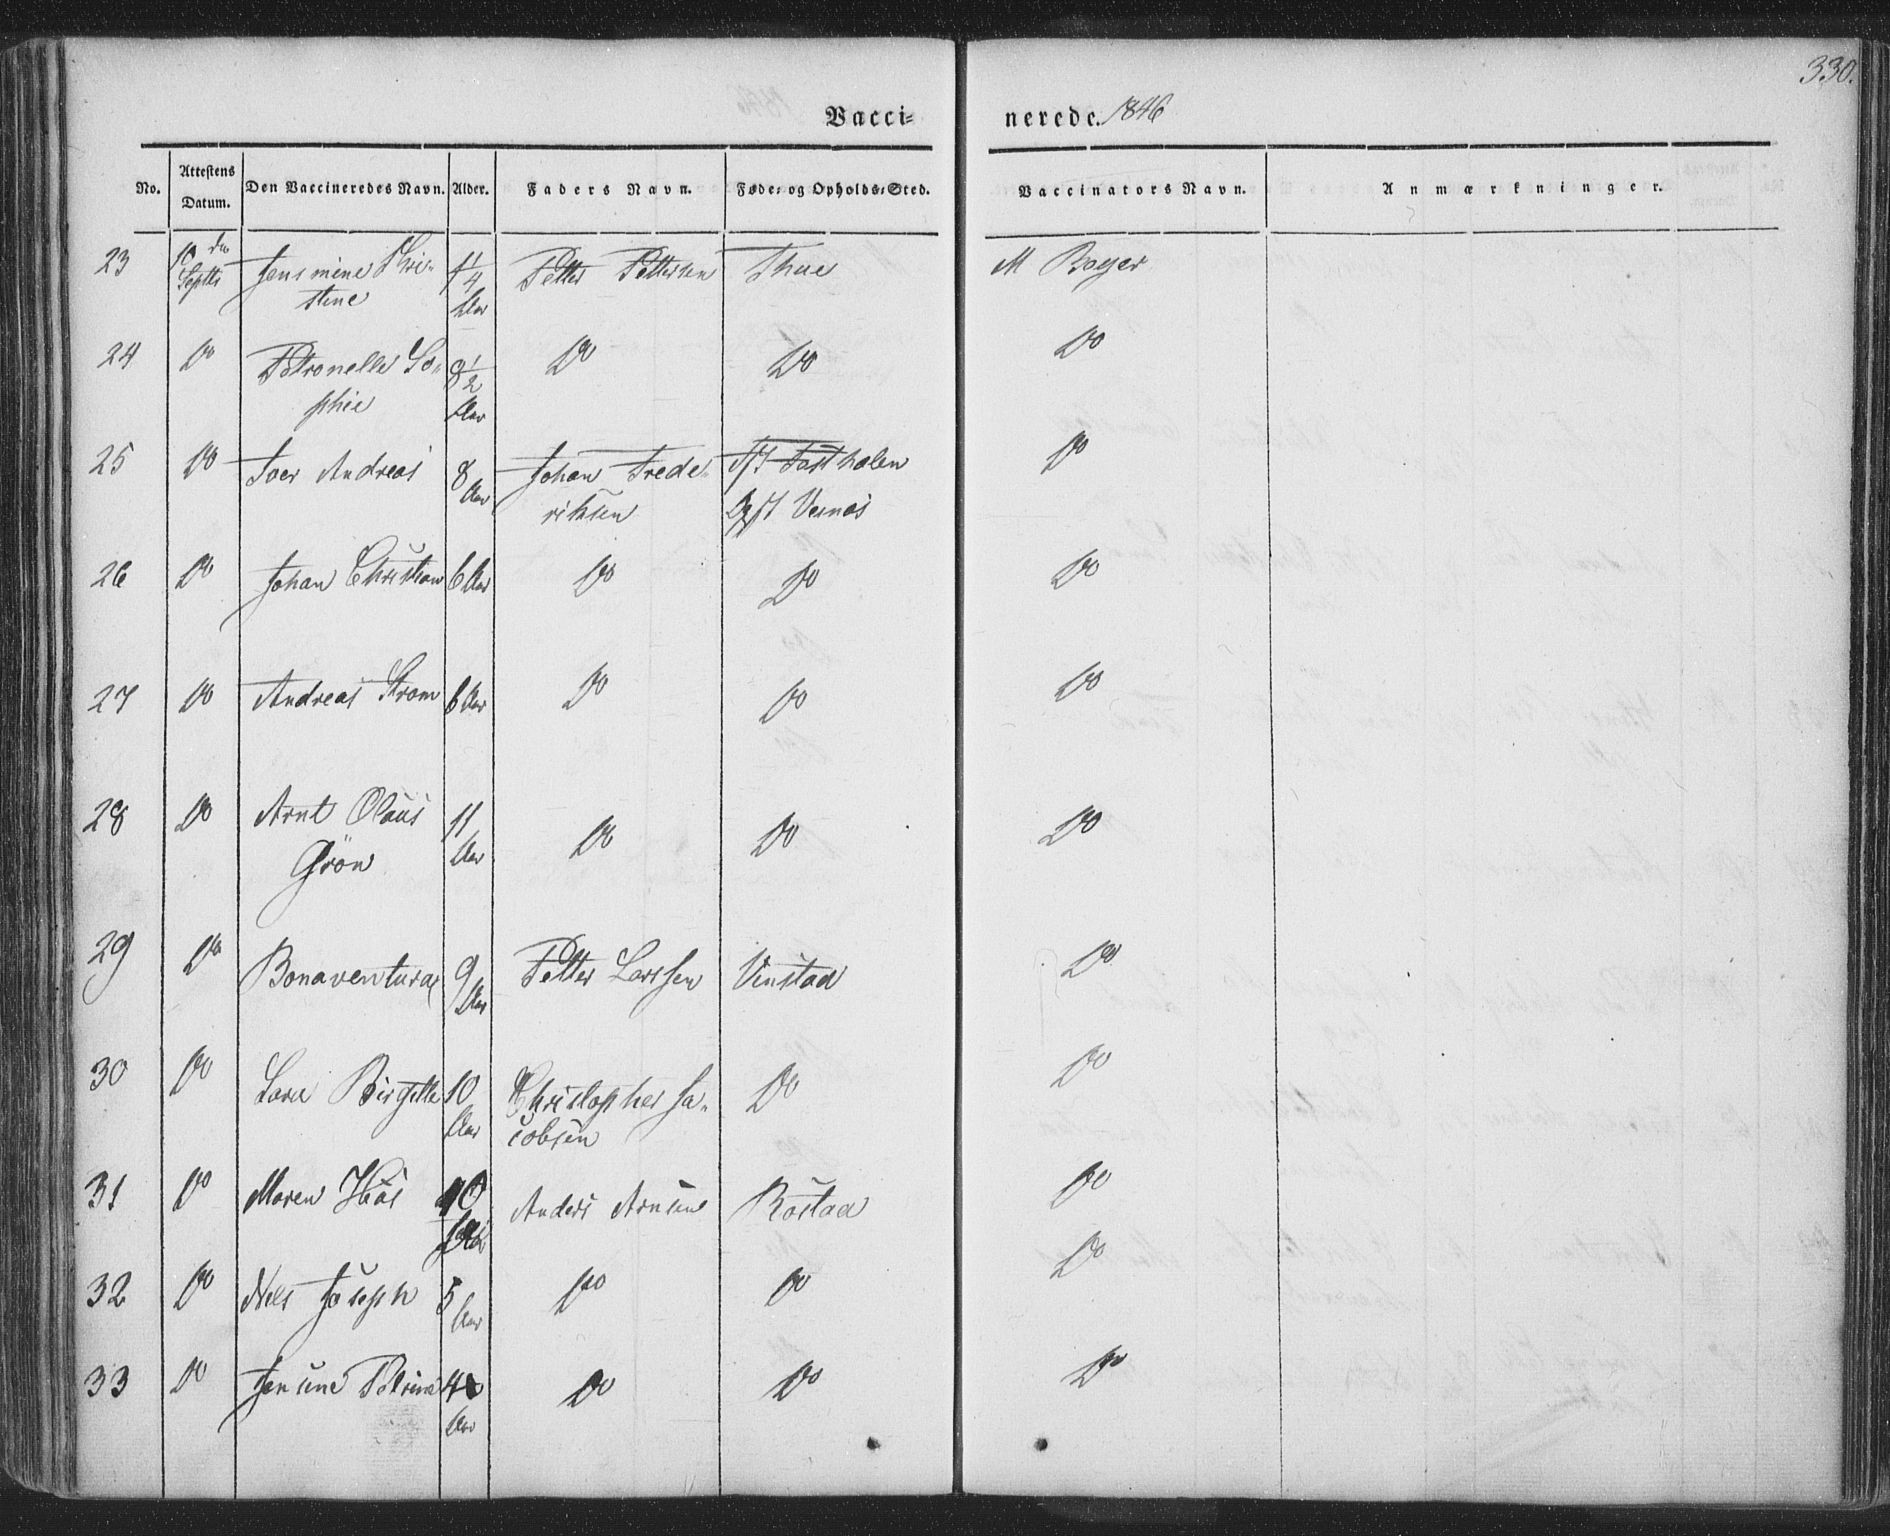 330.
Vacci= nerede. 1846
No. Attestens Datum. Den Vaccineredes Navn. Alder. Faders Navn. Føde= og Opholds=Sted. Vaccinators Navn. Anmærkninger.
23 10 de Septbr Jensmine Chri= 1/4 Petter Pettersen Thue M Boyer
stine Aar
24 Do Petronelle So= 8 1/2 Do Do Do
phie Aar
25 Do Joer Andreas 8 Aar Johan Frede= Do
riksen Opst Vernæs
26 Do Johan Christian 6 Aar Do Do Do
27 Do Andreas Strom 6 Aar Do Do Do
28 Do Arnt Olaus 11 Aar Do Do Do
Grön
29 Do Bonaventura 9 Aar Petter Larssen Vinstad Do
30 Do Lara Birgitte 10 Aar Christopher Ja= Do Do
cobsen
31 Do Maren 10 Aar Anders Arnsen Røstad Do
32 Do Nels Joseph 5 Aar Do Do Do
33 Do Jensine Petrine 4 Aar Do Do Do